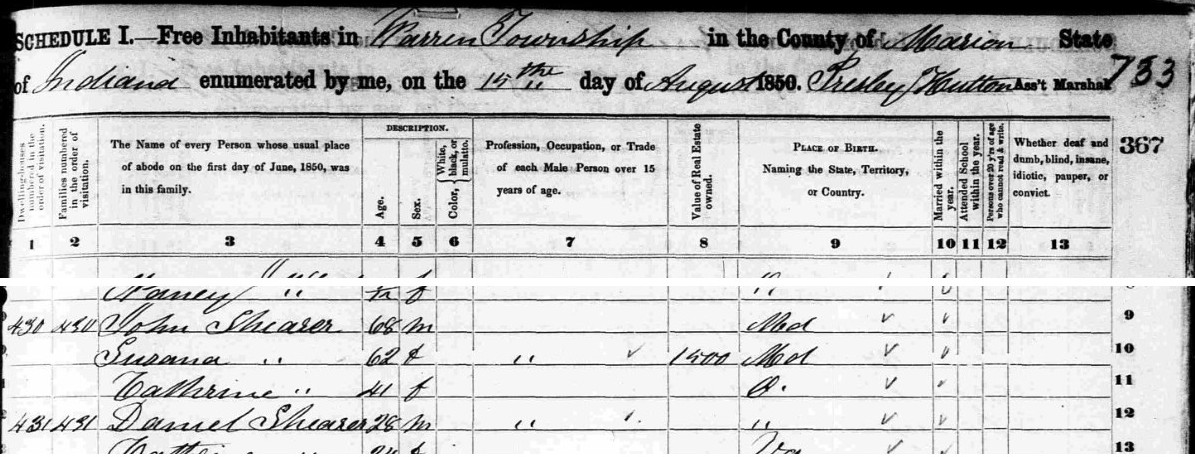 SCHEDULE I.—Free Inhabitants in Warren Township in the County of Marion State
of Indiana enumerated by me, on the 15th day of August 1850. Presley Hutton Ass't Marshal 733
367
Dwelling-houses numbered in the order of visitation.
Families numbered in the order of visitation.
The Name of every Person whose usual place of abode on the first day of June, 1850, was in this family.
DESCRIPTION.
Age.
Sex.
Color, { White, black, or mulatto.
Profession, Occupation, or Trade of each Male Person over 15 years of age.
Value of Real Estate owned.
PLACE OF BIRTH. Naming the State, Territory, or Country.
Married within the year.
Attended School within the year.
Persons over 20 y'rs of age who cannot read & write.
Whether deaf and dumb, blind, insane, idiotic, pauper, or convict.
1 2 3 4 5 6 7 8 9 10 11 12 13
Nancy " f "
430 430 John Shearer 68 m Md 9
Susana " 62 f " 1500 Md 10
Cathrine " 41 f O. 11
431 431 Daniel Shearer 28 m " " 12
Va 13